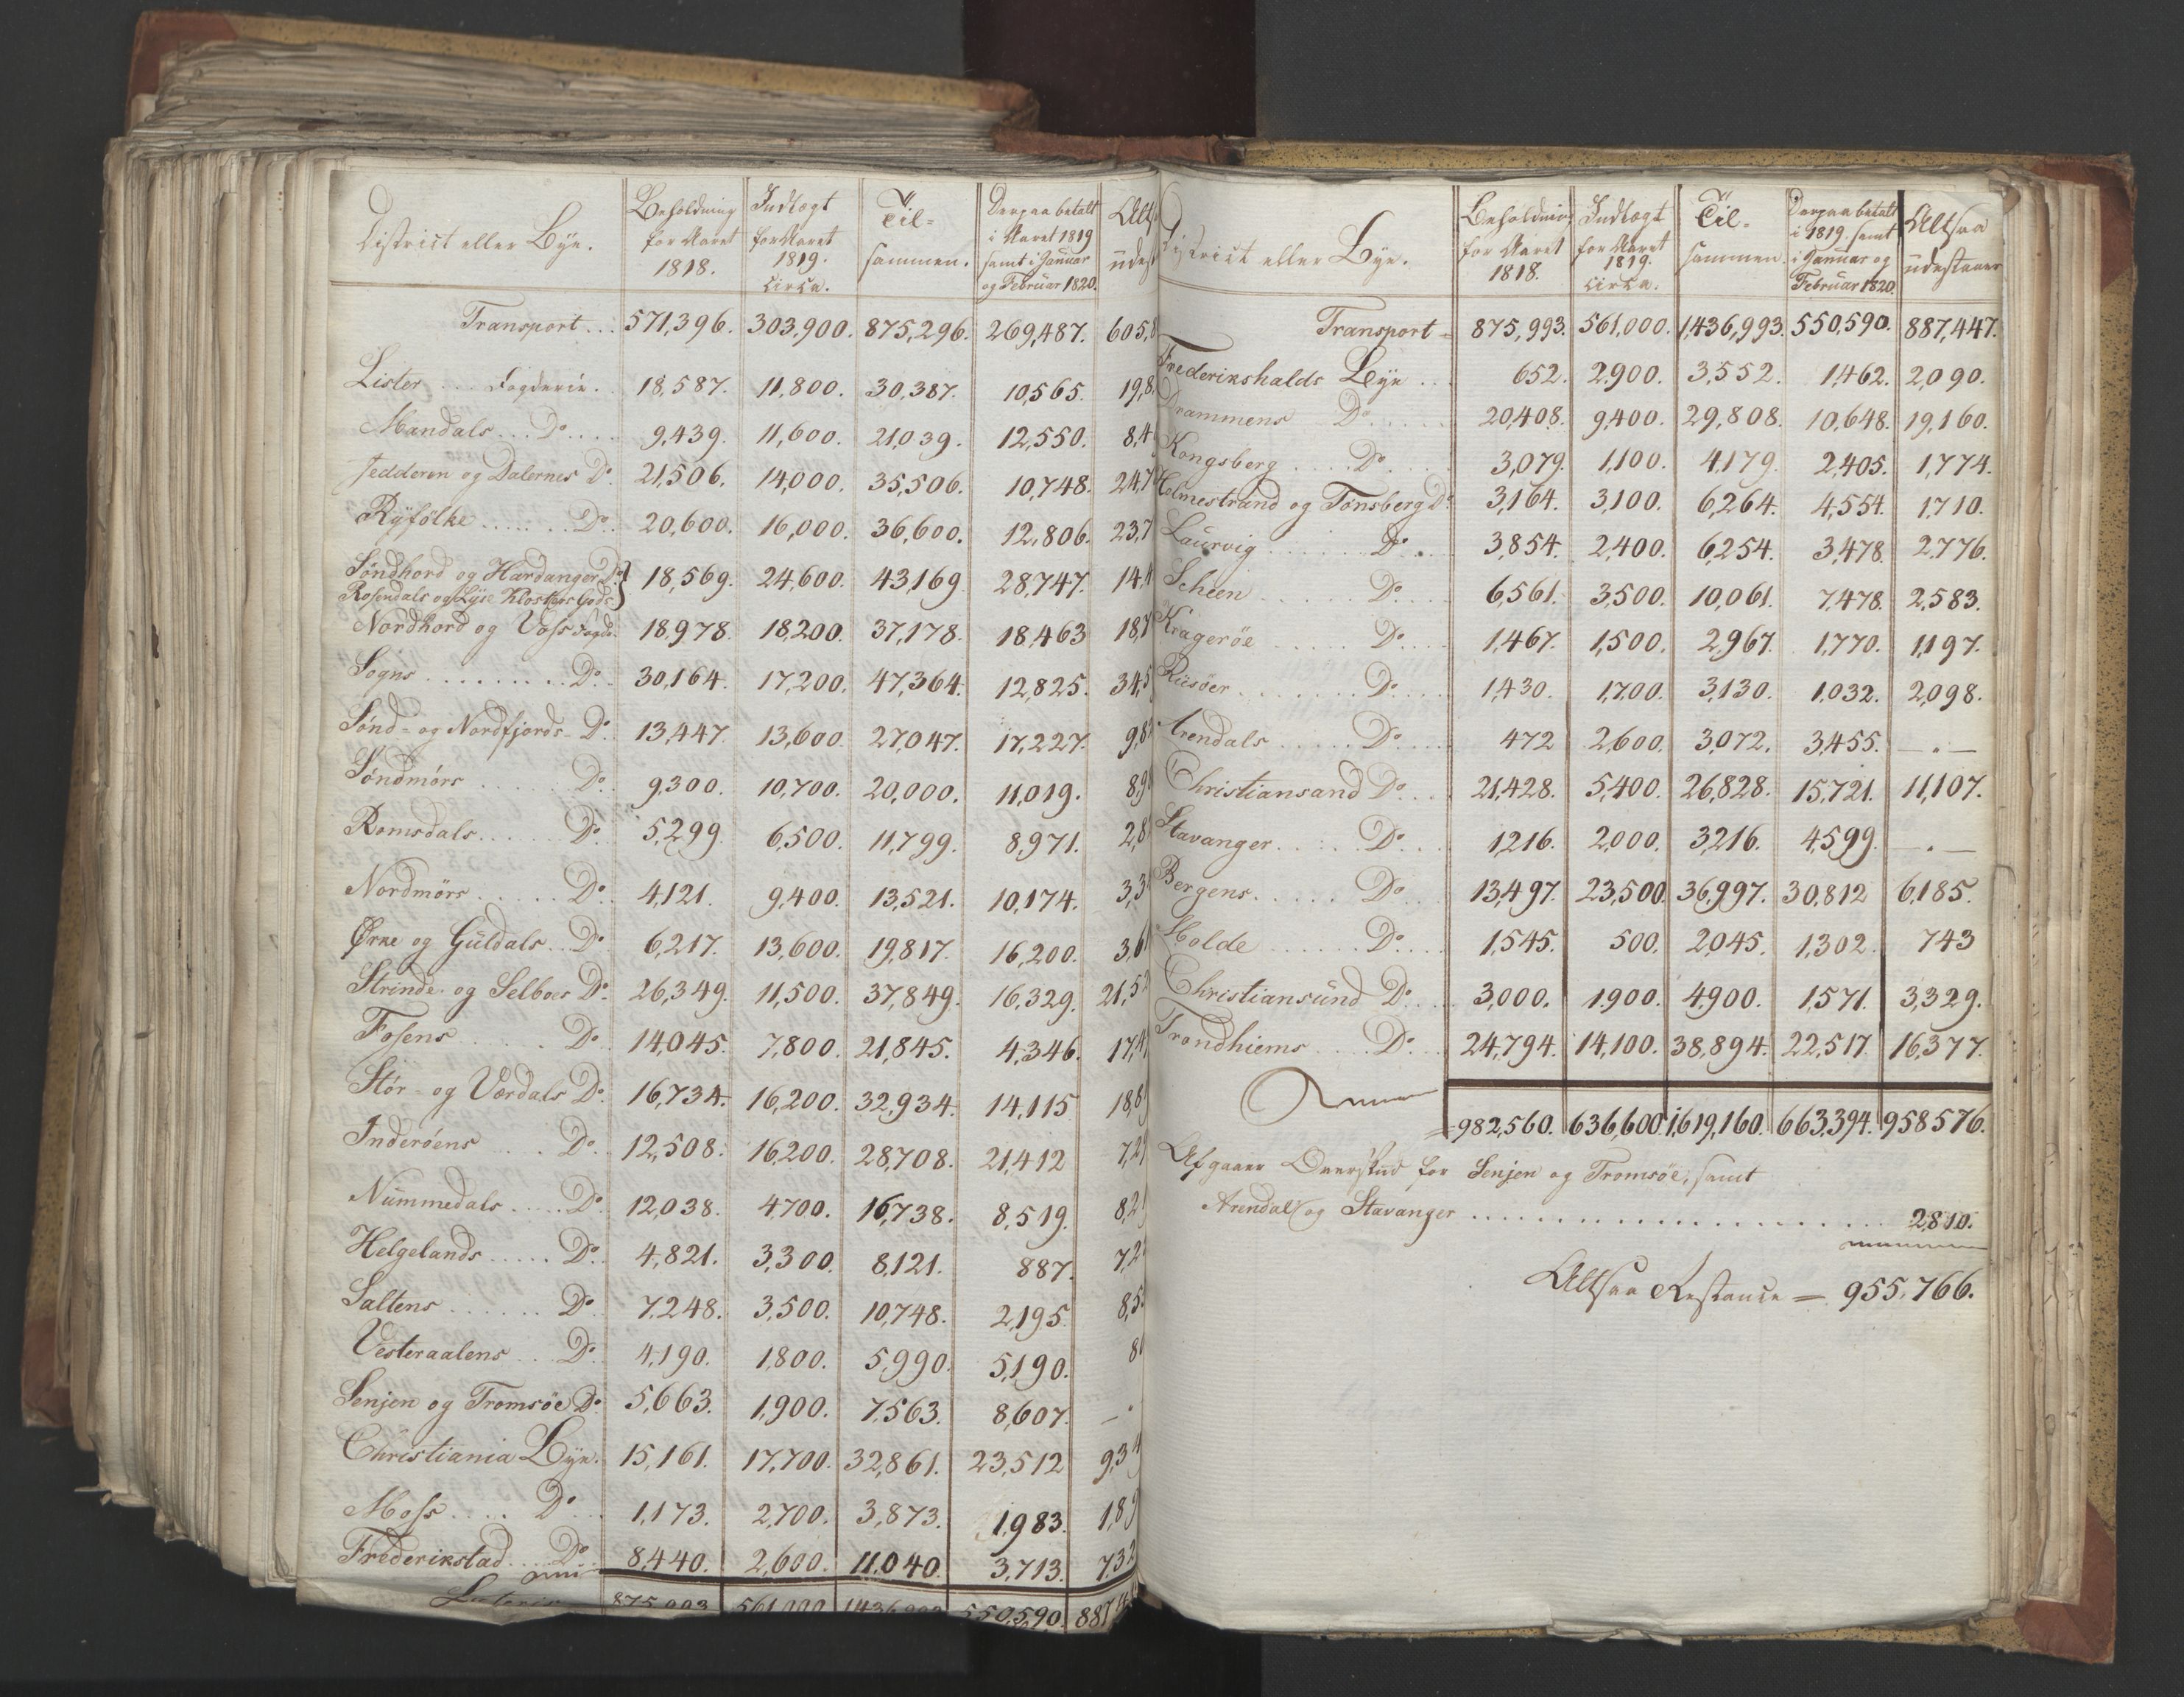 District eller Bye. Beholdning for Aaret 1818. Indlagt for Aaret 1819. circa. Til- sammen. Derpaa betalt i Aaret 1819 samt i Januar og Februar 1820.
Transport... 571,396. 303,900. 875,296. 269,487. 605,8
Lister... Fogderie. 18,587. 11,800. 30,387. 10,565. 19,8
Mandals... Do... 9,439. 11,600. 21,039. 12,550. 8,4
Jedderen og Dalernes Do. 21,506. 14,000. 35,506. 10,748. 24,7
Ryfylke... Do. 20,600. 16,000. 36,600. 12,806. 23,7
Søndhord og Hardanger Do
Rosendals og Lyse Klosters Gods } 18,569. 24,600. 43,169 28,747. 14,4
Nordhord og Voss Fogd. 18,978. 18,200. 37,178. 18,463 18,7
Sogns... Do. 30,164. 17,200. 47,364. 12,825. 34,5
Sønd- og Nordfjords- Do. 13,447. 13,600. 27,047. 17,227. 9,8
Søndmørs... Do. 9,300. 10,700. 20,000. 11,019. 8,9
Romsdals... Do. 5,299. 6,500. 11,799. 8,971. 2,8
Nordmørs... Do. 4,121. 9,400. 13,521. 10,174. 3,3
Ørke og Guldals... Do 6,217. 13,600. 19,817. 16,200. 3,6
Strinde- og Selboes Do. 26,349. 11,500. 37,849. 16,329. 21,52
Fosens... Do. 14,045. 7,800. 21,845. 4,346. 17,4
Stør- og Værdals Do. 16,734. 16,200. 32,934. 14,115 18,8
Inderøens... Do. 12,508. 16,200. 28,708. 21,412 7,2
Nummedals... Do. 12,038. 4,700. 16,738. 8,519. 8,2
Helgelands... Do. 4,821. 3,300. 8,121. 887. 7,2
Saltens... Do. 7,248. 3,500. 10,748. 2,195. 8,5
Vesteraalens... Do. 4,190. 1,800. 5,990. 5,190. 8
Senjen og Tromsøe Do. 5,663. 1,900. 7,563. 8,607. —.
Christiania Bye. 15,161. 17,700. 32,861. 23,512 9,3
Moss... Do... 1,173. 2,700. 3,873. 1,983. 1,8
Frederikstad... Do. 8,440. 2,600. 11,040 3,713. 7,32
Lateris 875,993 561,000 1436,993 550,590. 887,4
District eller Bye. Beholdning for Aaret 1818. Indlagt for Aaret 1819. circa. Til- sammen. Derpaa betalt i 1819. samt i Januar og Februar 1820. Altsaa udestaaer
Transport = 875,993. 561,000. 1,436,993. 550,590. 887,447.
Frederikshalds Bye... 652. 2,900. 3,552. 1,462. 2,090.
Drammens Do... 20,408. 9,400. 29,808. 10,648. 19,160.
Kongsberg... Do... 3,079. 1,100. 4,179. 2,405. 1,774.
Holmestrand og Tønsberg Do. 3,164. 3,100. 6,264. 4,554. 1,710.
Laurvig... Do... 3,854. 2,400. 6,254. 3,478. 2,776.
Scheen... Do... 6,561. 3,500. 10,061. 7,478. 2,583.
Kragerøe... Do... 1,467. 1,500. 2,967. 1,770. 1,197.
Riisøer... Do... 1,430. 1,700. 3,130. 1,032. 2,098.
Arendals... Do... 472 2,600. 3,072. 3,455. —.—
Christiansand Do... 21,428. 5,400. 26,828. 15,721. 11,107.
Stavanger... Do... 1,216. 2,000. 3,216. 4,599. —.—
Bergens... Do... 13,497. 23,500. 36,997. 30,812 6,185.
Molde... Do... 1,545. 500. 2,045. 1,302. 743
Christiansund Do... 3,000. 1,900. 4,900. 1,571. 3,329.
Trondhiems... Do... 24,794. 14,100. 38,894. 22,517. 16,377.
= 982,560. 636,600. 1,619,160. 663,394. 958576.
Afgaaer Overskud for Senjen og Tromsøe, samt
Arendal og Stavanger... 2,810.
Altsaa Restance = 955,766.